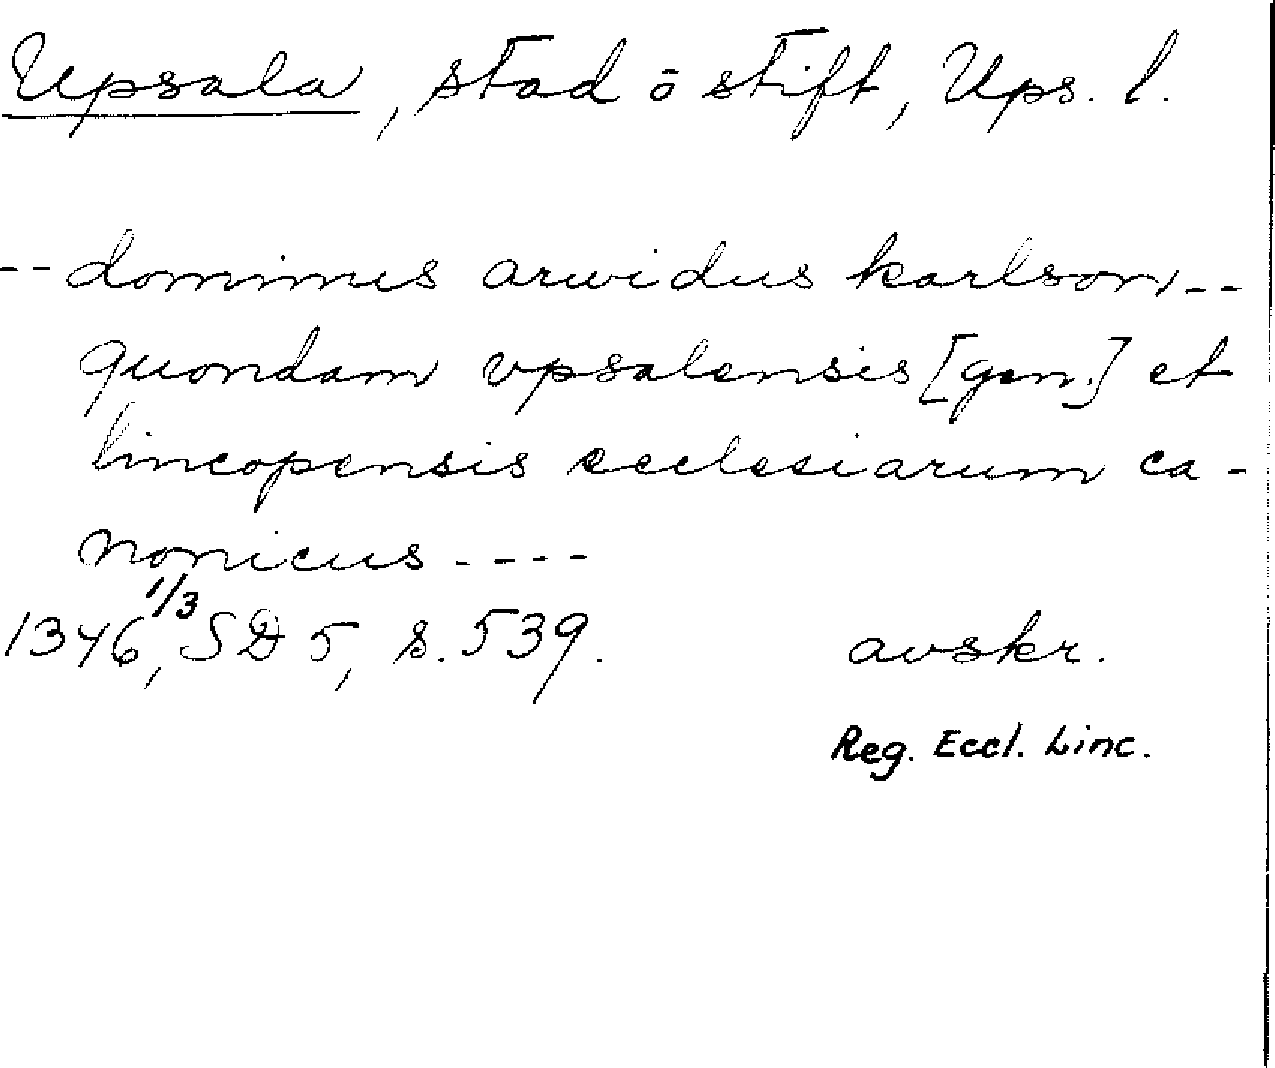 Upsala, stad o stift, Ups. l.
-- dominus arwidus karlson --
quondam vpsalensis [gen.] et
lincopensis ecclesiarum ca-
nonicus ----
1346 1/3, SD 5, s. 539. avskr.
Reg. Eccl. Linc.